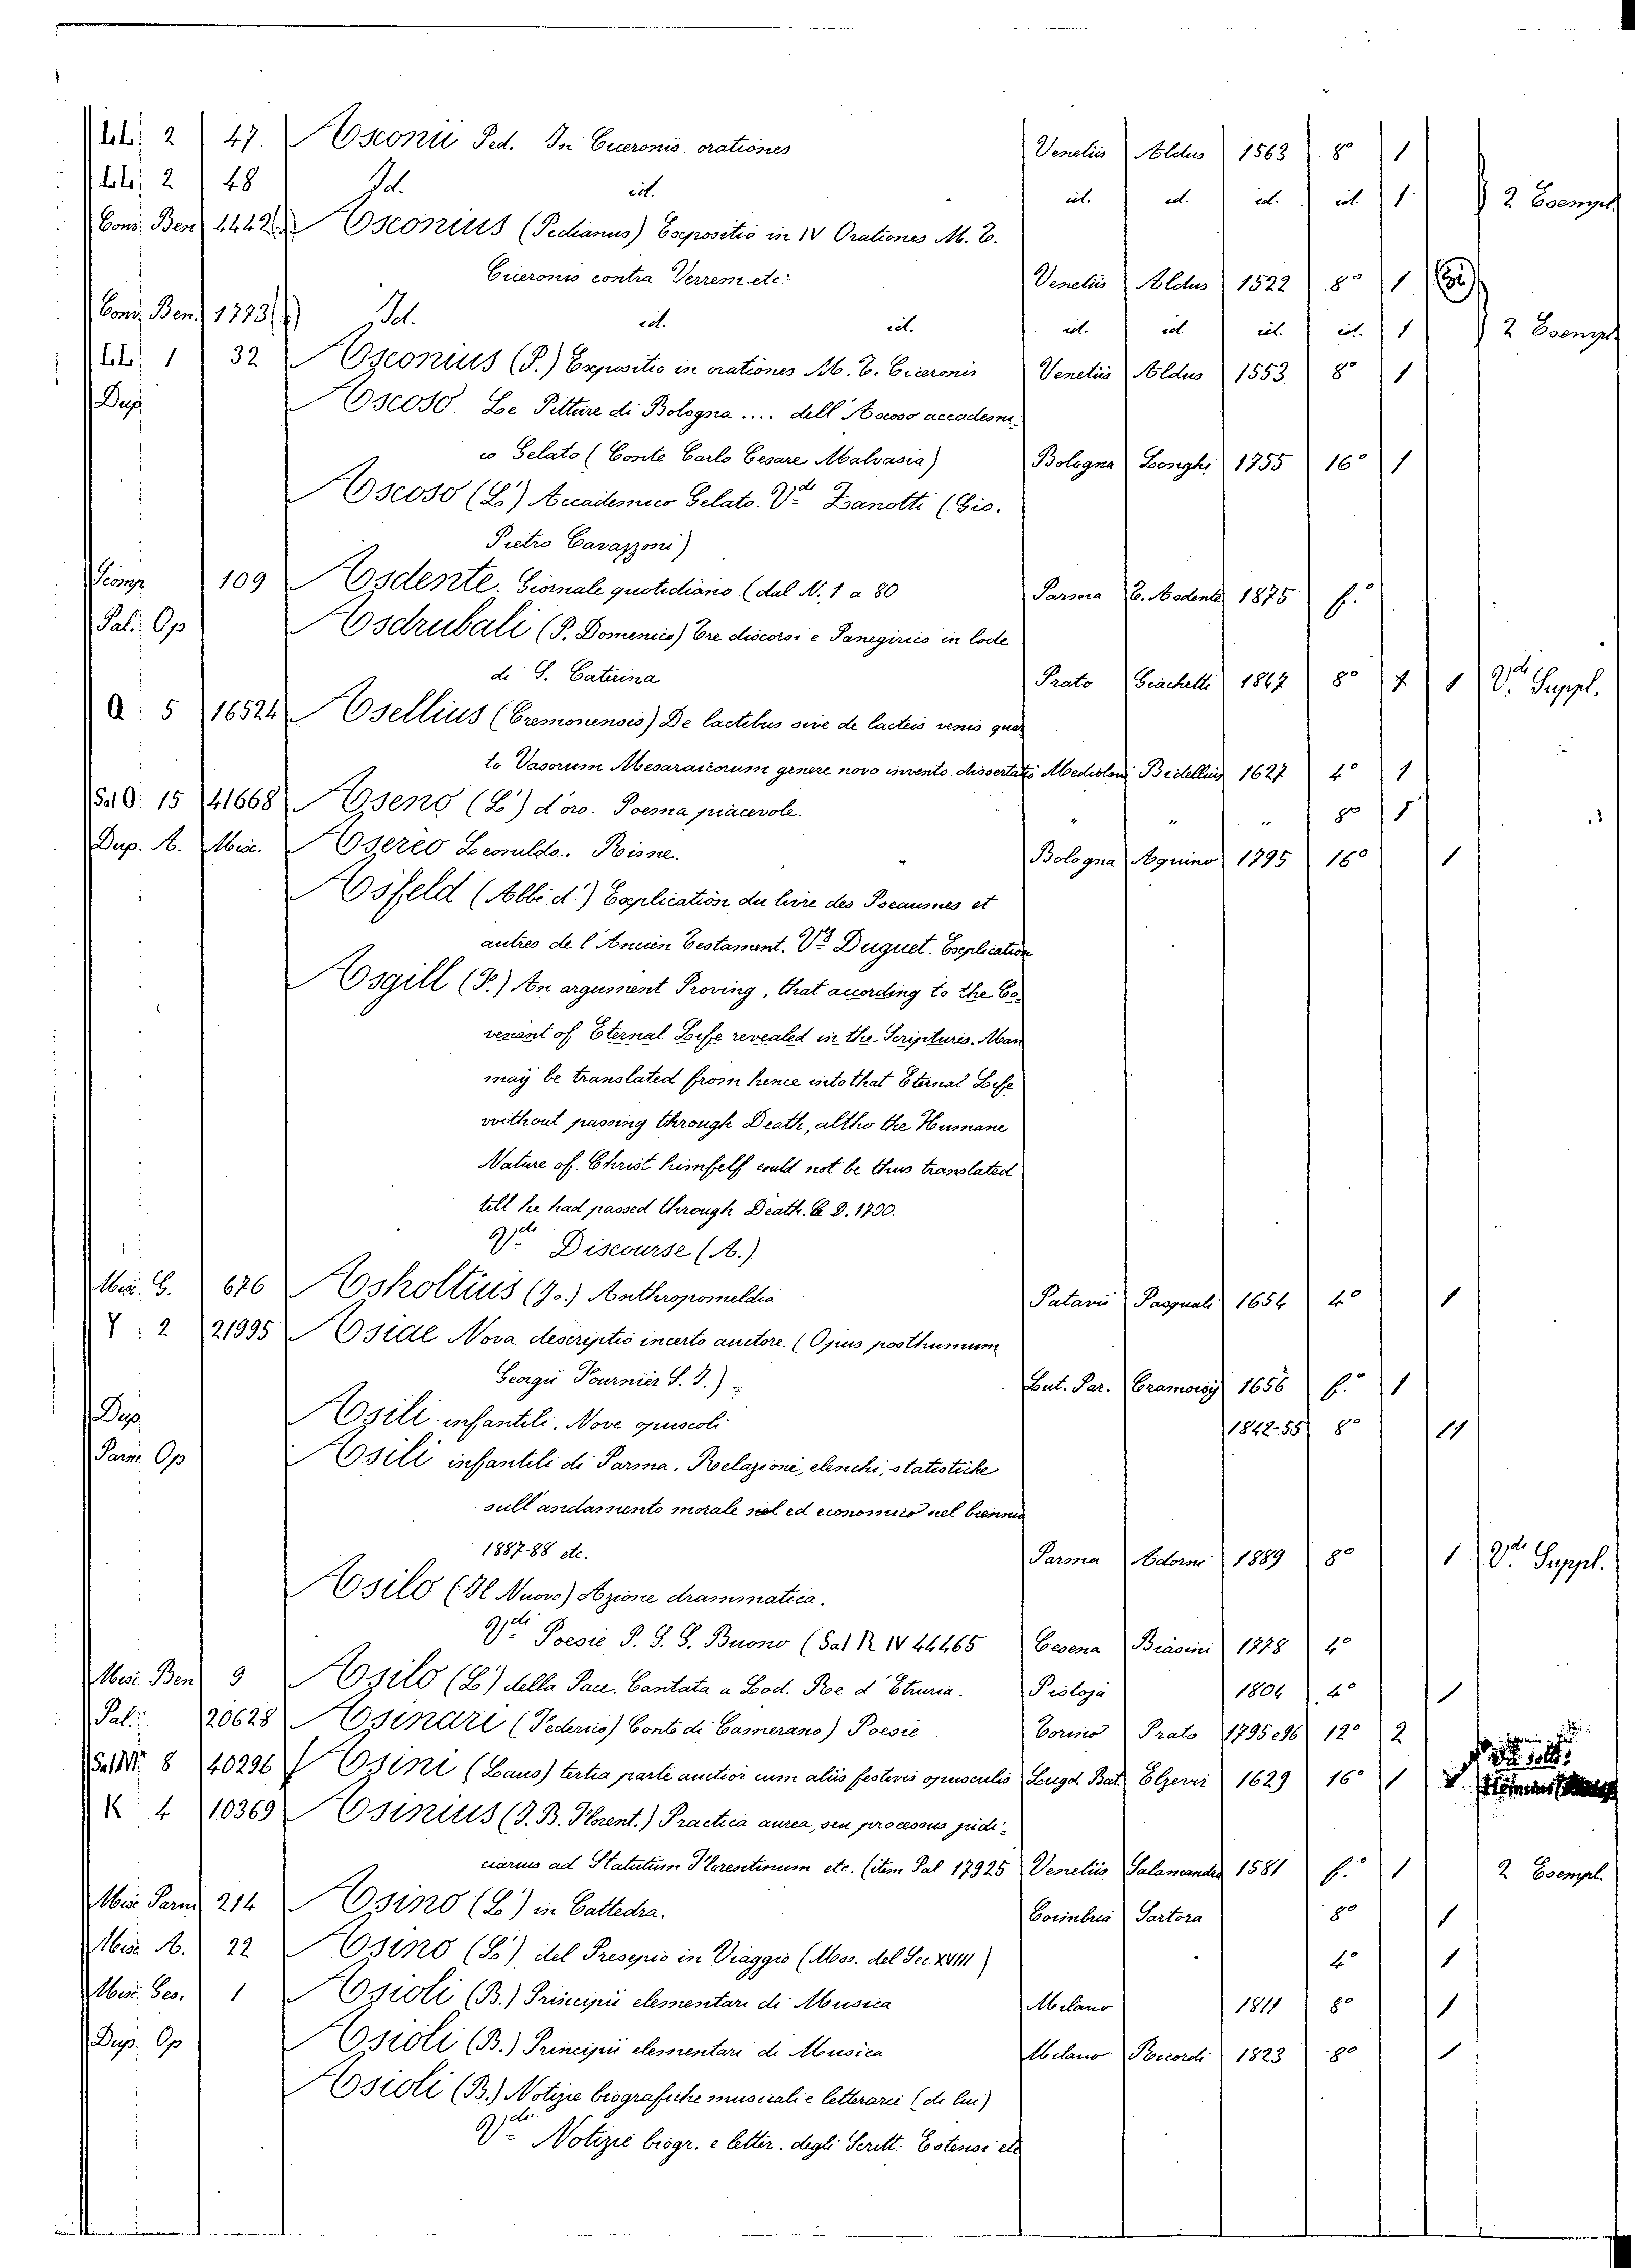 LL. 2 47. Asconii Ped. In Ciceronis orationes Venetiis Aldus 1563 8° 1
LL. 2 48 Id. id. id. id. id. id. 1 2 Esempl.
Cons. Ben. 4442 Asconius (Pedianus) Expositio in IV Orationes M. T.
Ciceronis contra Verrem etc: Venetiis Aldus 1522 8° 1
Cons. Ben. 1773 Id. id. id. id. id. id. id. 1 2 Esempl
LL. 1 32 Asconius (P.) Expositio in orationes M. T. Ciceronis Venetiis Aldus 1553 8° 1
Dup. Ascoso. Le Pitture di Bologna .... dell'Ascoso accademi-
co Gelato (Conte Carlo Cesare Malvasia) Bologna Longhi 1755 16° 1
Ascoso (L') Accademico Gelato. V.di Zanotti (Gio.
Pietro Cavazzoni)
109 Asdente. Giornale quotidiano (dal N. 1 a 80 Parma T. Asdente 1875 f.°
Pal. Op Asdrubali (P. Domenico) Tre discorsi e Panegirici in lode
di S. Caterina Prato Giachetti 1867 8° 1 1 V.di Suppl.
Q. 5 16524 Asellius (Cremonensis) De lactibus sive de lacteis venis quar
to Vasorum Mesaraicorum genere novo invento dissertatio Mediolani Bidellius 1627 4° 1
Sal O. 15 41668 Aseno (L') d'oro. Poema piacevole. " " " 8° 1
Dup. A. Misc. Aserео Leonildo. Rime. Bologna Aquino 1795 16° 1
Asfeld (Abbé d') Explication du livre des Pseaumes et
autres de l'Ancien Testament. V.di Duguet. Explication
Asgill (J.) An argument Proving, that acording to the Co-
venant of Eternal Life revealed in the Scriptures. Man
may be translated from hence into that Eternal Life
without passing through Death, altho the Humane
Nature of Christ himself could not be thus translated
till he had passed through Death. A. D. 1700.
V.di Discourse (A.)
Misc. G. 676 Asholtius (Jo.) Anthropomeldia Patavii Pasquali 1654 4° 1
Y. 2 21995 Asiae Nova descriptio incerto auctore. (Opus posthumum
Georgii Fournier S. J.) Lut. Par. Cramoisy 1656 f.° 1
Dup Asili infantili. Nove opuscoli 1842-55 8° 11
Parm. Op Asili infantili di Parma. Relazioni, elenchi, statistiche
sull'andamento morale nel ed economico nel biennio
1887-88 etc. Parma Adorni 1889 8° 1 V.di Suppl.
Asilo (Il Nuovo) Azione drammatica.
V.di Poesie P. S. G. Buono (Sal R IV 44465 Cesena Biasini 1778 4°
Misc. Ben 9 Asilo (L') della Pace. Cantata a Lod. Re d'Etruria. Pistoja 1804 4° 1
Pal. 20628 Asinari (Federico) Conte di Camerano) Poesie Torino Prato 1795 e 96 12° 2
Sal M. 8 40296 Asini (Laus) tertia parte auctior cum aliis festivis opusculis Lougd. Bat. Elzevir 1629 16° 1
K 4 10369 Asinius (J. B. Florent.) Practica aurea, seu processus judi-
ciarius ad Statutum Florentinum etc. (item Pal 17925 Venetiis Salamander 1581 f.° 1 2 Esempl.
Misc Parm 214 Asino (L') in Cattedra. Coimbria Sartora 8° 1
Misc A. 22 Asino (L') del Presepio in Viaggio (Mss. del Sec. XVIII) 4° 1
Misc. Ges. 1 Asioli (B.) Principii elementari di Musica Milano 1811 8° 1
Dup. Op Asioli (B.) Principii elementari di Musica Milano Riccordi 1823 8° 1
Asioli (B.) Notizie biografiche musicali e letterarie (di lui)
V.di Notizie biogr. e letter. degli Scritt. Estensi etc